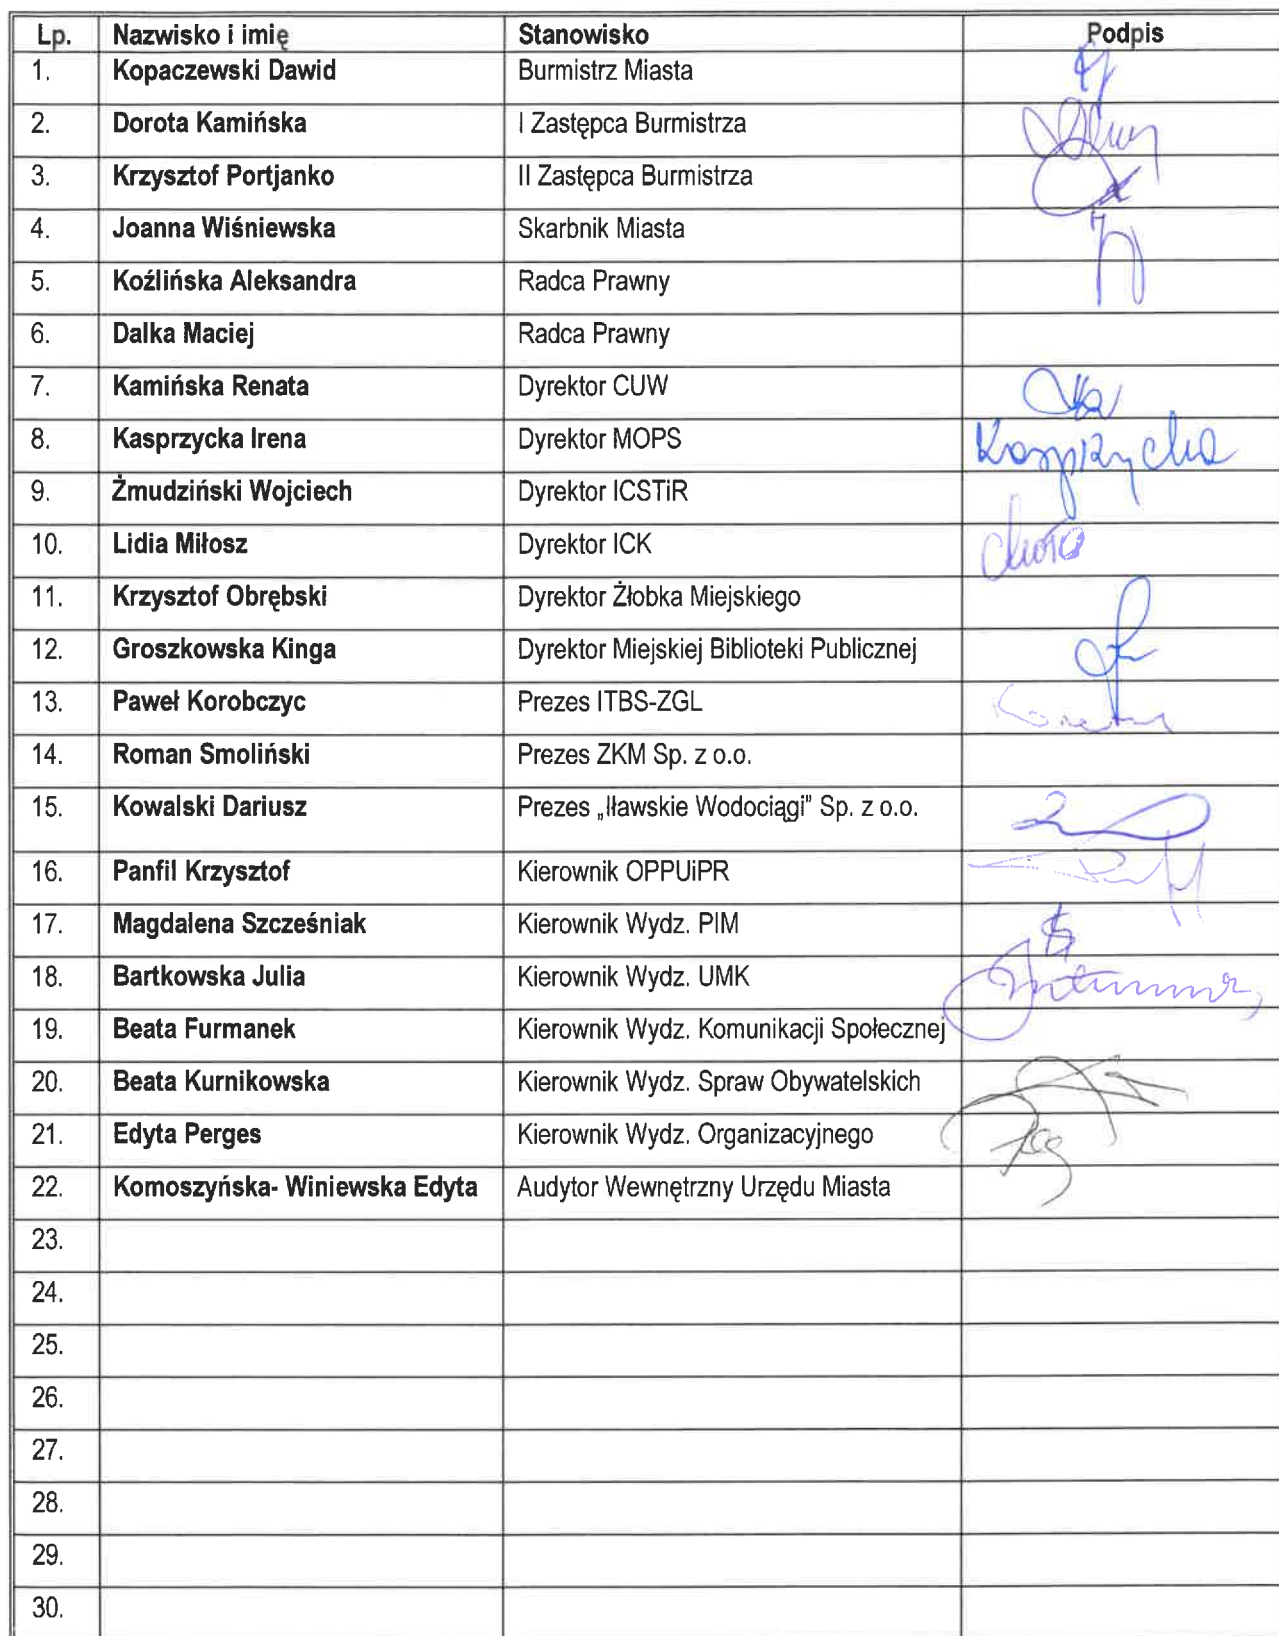 Lp. Nazwisko i imię Stanowisko Podpis
1. Kopaczewski Dawid Burmistrz Miasta
2. Dorota Kamińska I Zastępca Burmistrza
3. Krzysztof Portjanko II Zastępca Burmistrza
4. Joanna Wiśniewska Skarbnik Miasta
5. Koźlińska Aleksandra Radca Prawny
6. Dalka Maciej Radca Prawny
7. Kamińska Renata Dyrektor CUW
8. Kasprzycka Irena Dyrektor MOPS Kasprzycka
9. Żmudziński Wojciech Dyrektor ICSTiR
10. Lidia Miłosz Dyrektor ICK
11. Krzysztof Obrębski Dyrektor Żłobka Miejskiego
12. Groszkowska Kinga Dyrektor Miejskiej Biblioteki Publicznej
13. Paweł Korobczyc Prezes ITBS-ZGL
14. Roman Smoliński Prezes ZKM Sp. z o.o.
15. Kowalski Dariusz Prezes „Iławskie Wodociągi” Sp. z o.o.
16. Panfil Krzysztof Kierownik OPPUiPR
17. Magdalena Szcześniak Kierownik Wydz. PIM
18. Bartkowska Julia Kierownik Wydz. UMK
19. Beata Furmanek Kierownik Wydz. Komunikacji Społecznej
20. Beata Kurnikowska Kierownik Wydz. Spraw Obywatelskich
21. Edyta Perges Kierownik Wydz. Organizacyjnego
22. Komoszyńska- Winiewska Edyta Audytor Wewnętrzny Urzędu Miasta
23.
24.
25.
26.
27.
28.
29.
30.